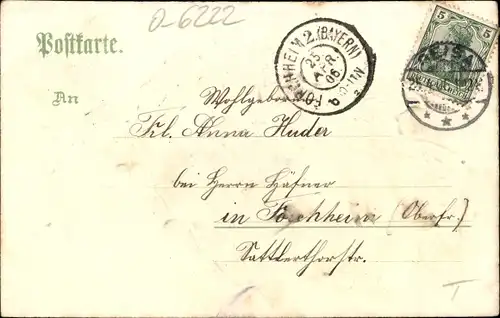 O-6222
Postkarte.
FORCHHEIM 2. (BAYERN)
23 APR 06
5 5
DEUTSCHES REICH
RIESA
An
Wohlgeboren
Frl. Anna Huder
bei Herrn Häfner
in Forchheim (Oberfr.)
Sattlerthorstr.
T